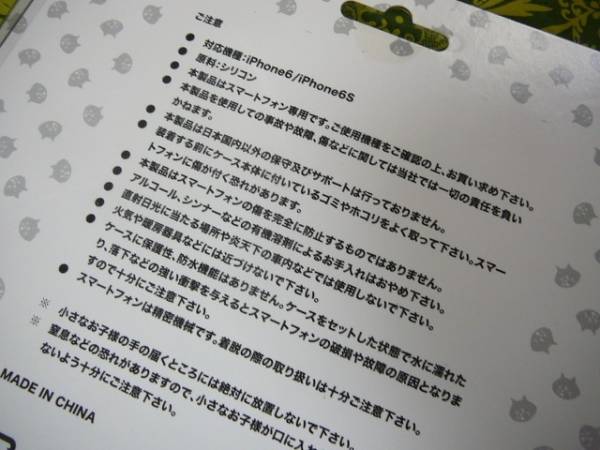 ご注意
対応機種：iPhone6/iPhone6S
原料：シリコン
本製品はスマートフォン専用です。ご使用機種をご確認の上、お買い求め下さい。
本製品を使用しての事故や故障、傷などに関しては当社では一切の責任を負い
かねます。
本製品は日本国内以外の保守及びサポートは行っておりません。
装着する前にケース本体に付いているゴミやホコリをよく取って下さい。スマー
トフォンに傷が付く恐れがあります。
本製品はスマートフォンの傷を完全に防止するものではありません。
アルコール、シンナーなどの有機溶剤によるお手入れはおやめ下さい。
直射日光に当たる場所や炎天下の車内などでは使用しないで下さい。
火気や暖房器具などには近づけないで下さい。
ケースに保護性、防水機能はありません。ケースをセットした状態で水に濡れた
り、落下などの強い衝撃を与えるとスマートフォンの破損や故障の原因となりま
すので十分にご注意下さい。
スマートフォンは精密機械です。着脱の際の取り扱いは十分ご注意下さい。
※ 小さなお子様の手の届くところには絶対に放置しないで下さい。
※ 窒息などの恐れがありますので、小さなお子様が口に入れ
ないよう十分にご注意下さい。
MADE IN CHINA